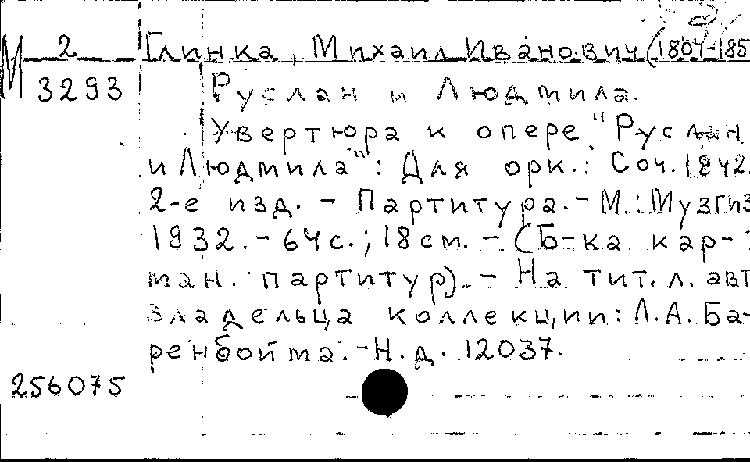 М 2 Глинка, Михаил Иванович (1804-185
3293 Руслан и Людмила.
Увертюра к опере "Руслан
и Людмила": Для орк.: Соч. 1842.
2-е изд. - Партитура. - М.: Музгиз
1932. - 64 с.; 18 см. - (Б-ка кар-
ман. партитур). - На тит. л. авт
владельца коллекции: Л.А. Ба-
ренбойма. - Н.д. 12037.
256075